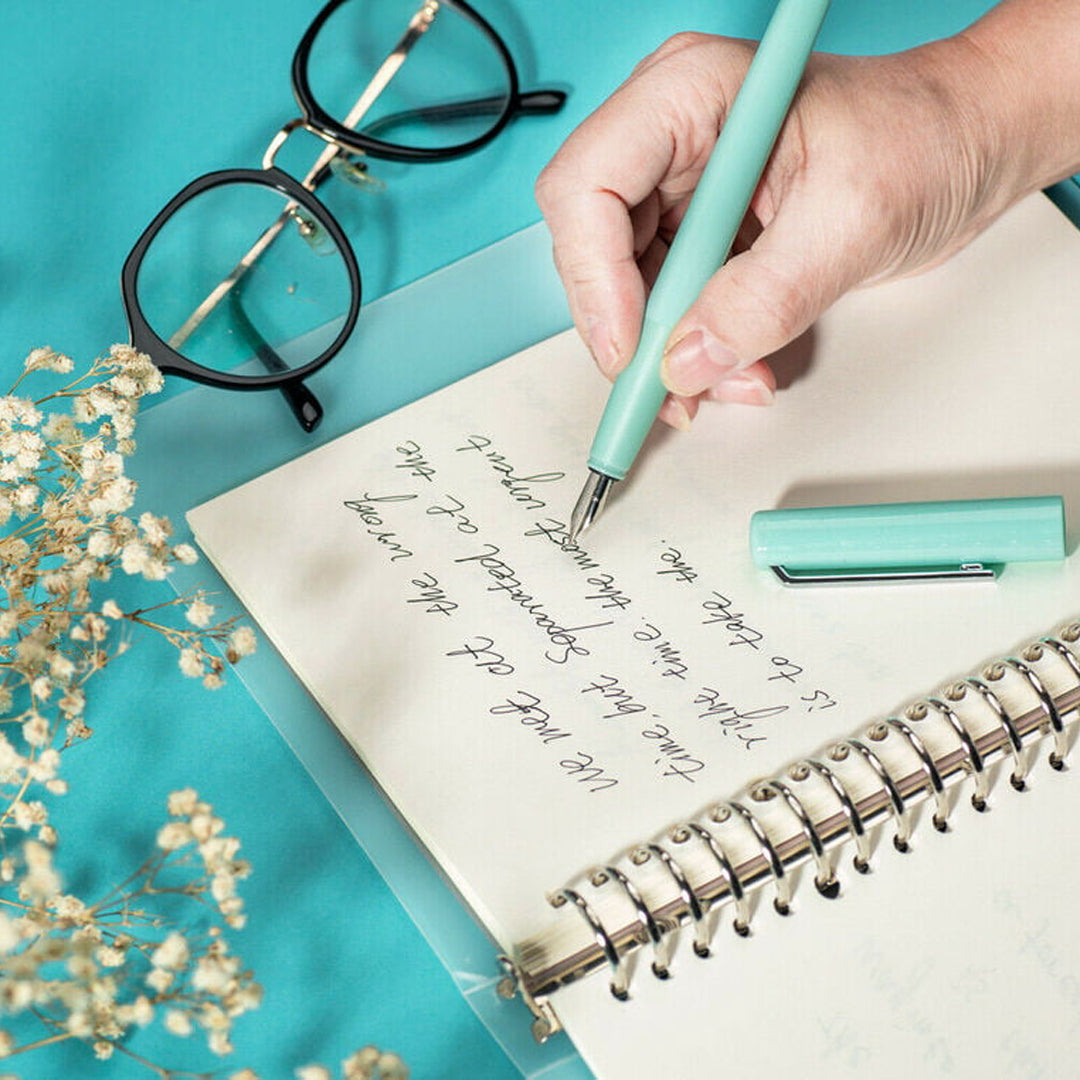 we met at the wrong
time, but separated at the
right time. the most urgent
is to take the.